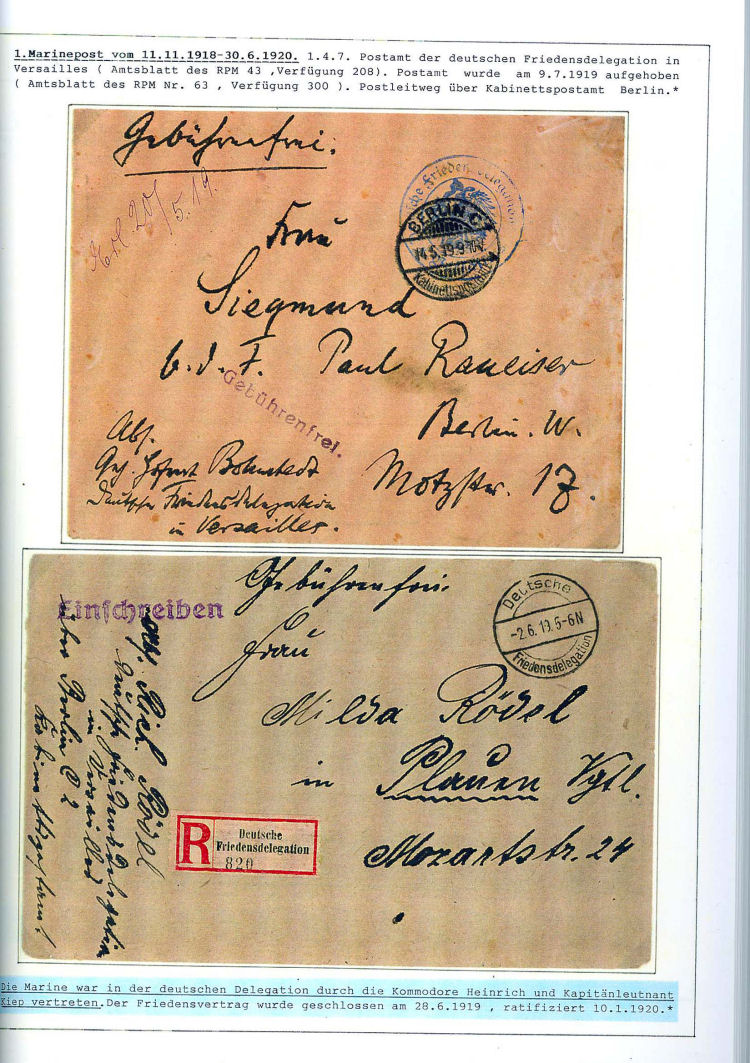 1.Marinepost vom 11.11.1918-30.6.1920. 1.4.7. Postamt der deutschen Friedensdelegation in
Versailles ( Amtsblatt des RPM 43 ,Verfügung 208). Postamt wurde am 9.7.1919 aufgehoben
( Amtsblatt des RPM Nr. 63 , Verfügung 300 ). Postleitweg über Kabinettspostamt Berlin.*
Gebührenfrei.
20/5.19.
BERLIN C
14.5.19.9-10V.
Kabinettspostamt
Frau
Siegmund
b. d. F. Paul Raneiser
Gebührenfrei.
Berlin. W.
Motzstr. 17.
Abs.
Geh. Hofrat Bohnstedt
Deutsche Friedensdelegation
in Versailles.
Gebührenfrei.
Einschreiben
Deutsche
-2.6.19.5-6N
Friedensdelegation
Frau
Milda Rödel
in Plauen Vgtl.
Mozartstr. 24
Abs. Rich. Rödel
Deutsche Friedensdelegation
in Versailles
über Berlin C 2
Kabinettspostamt
R
Deutsche
Friedensdelegation
820
Die Marine war in der deutschen Delegation durch die Kommodore Heinrich und Kapitänleutnant
Kiep vertreten.Der Friedensvertrag wurde geschlossen am 28.6.1919 , ratifiziert 10.1.1920.*